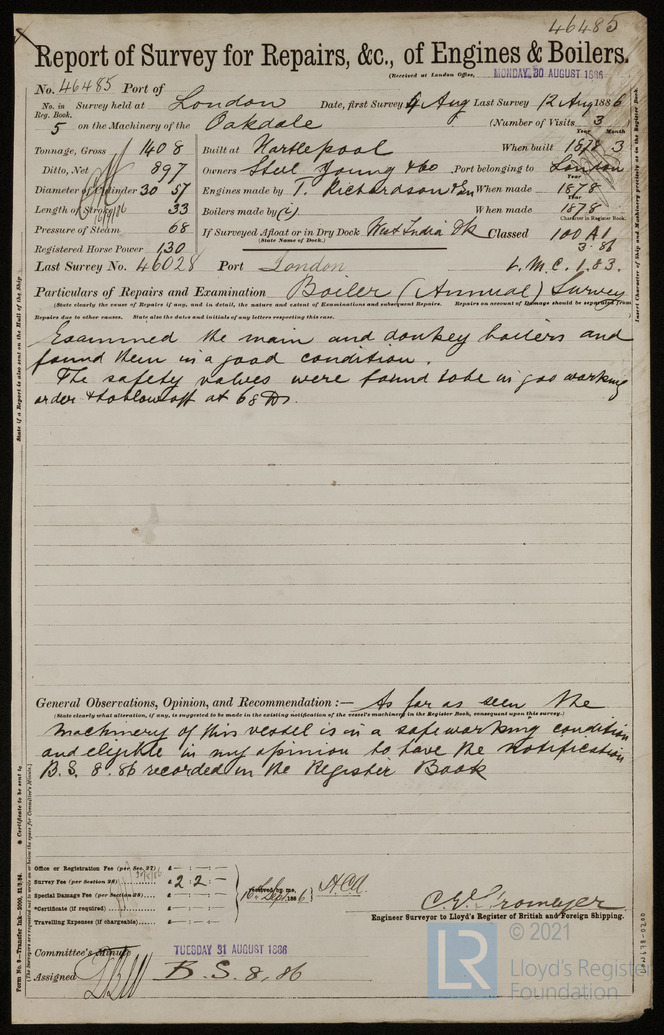 46485
Report of Survey for Repairs, &c., of Engines & Boilers.
(Received at London Office, MONDAY, 30 AUGUST 1886
No. 46485 Port of
No. in Reg. Book. Survey held at London Date, first Survey 4 Aug Last Survey 12 Aug 1886
5 on the Machinery of the Oakdale (Number of Visits 3
Tonnage, Gross 1408 Built at Hartlepool When built Year 1878 Month 3
Ditto, Net 897 Owners Steel Young & Co Port belonging to London
Diameter of Cylinder 30 57 Engines made by T. Richardson & Son When made Year 1878
Length of Stroke 33 Boilers made by When made Year 1878
Pressure of Steam 68 If Surveyed Afloat or in Dry Dock West India Dk Classed Character in Register Book. 100 A1
(State Name of Dock.) 3.86
Registered Horse Power 130
Last Survey No. 46028 Port London L.M.C. 1.83.
Particulars of Repairs and Examination Boiler (Annual) Survey
(State clearly the cause of Repairs if any, and in detail, the nature and extent of Examinations and subsequent Repairs. Repairs on account of Damage should be separated from
Repairs due to other causes. State also the dates and initials of any letters respecting this case.
Examined the main and donkey boilers and
found them in a good condition.
The safety valves were found to be in goo working
order & to blow off at 68 lbs.
General Observations, Opinion, and Recommendation :— As far as seen the
(State clearly what alteration, if any, is suggested to be made in the existing notification of the vessel's machinery in the Register Book, consequent upon this survey.)
machinery of this vessel is in a safe working condition
and eligible in my opinion to have the notification
B.S. 8.86 recorded in the Register Book
Office or Registration Fee (per Sec. 27) £ : - : -
Survey Fee (per Section 28) £ 2 : 2 : -
Special Damage Fee (per Section 28) £ : - : -
*Certificate (if required) £ : - : -
Travelling Expenses (if chargeable) £ : - : -
received by me,
10 Sep 1886
C. E. Stromeyer
Engineer Surveyor to Lloyd's Register of British and Foreign Shipping.
Committee's Minute TUESDAY 31 AUGUST 1886
Assigned B.S. 8,86
State if a Report is also sent on the Hull of the Ship
* Certificate to be sent to
Insert Character of Ship and Machinery precisely as in the Register Book.
© 2021
LR
Lloyd's Register
Foundation